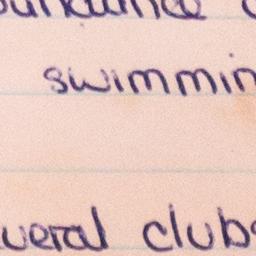 swimmin
veral clubs